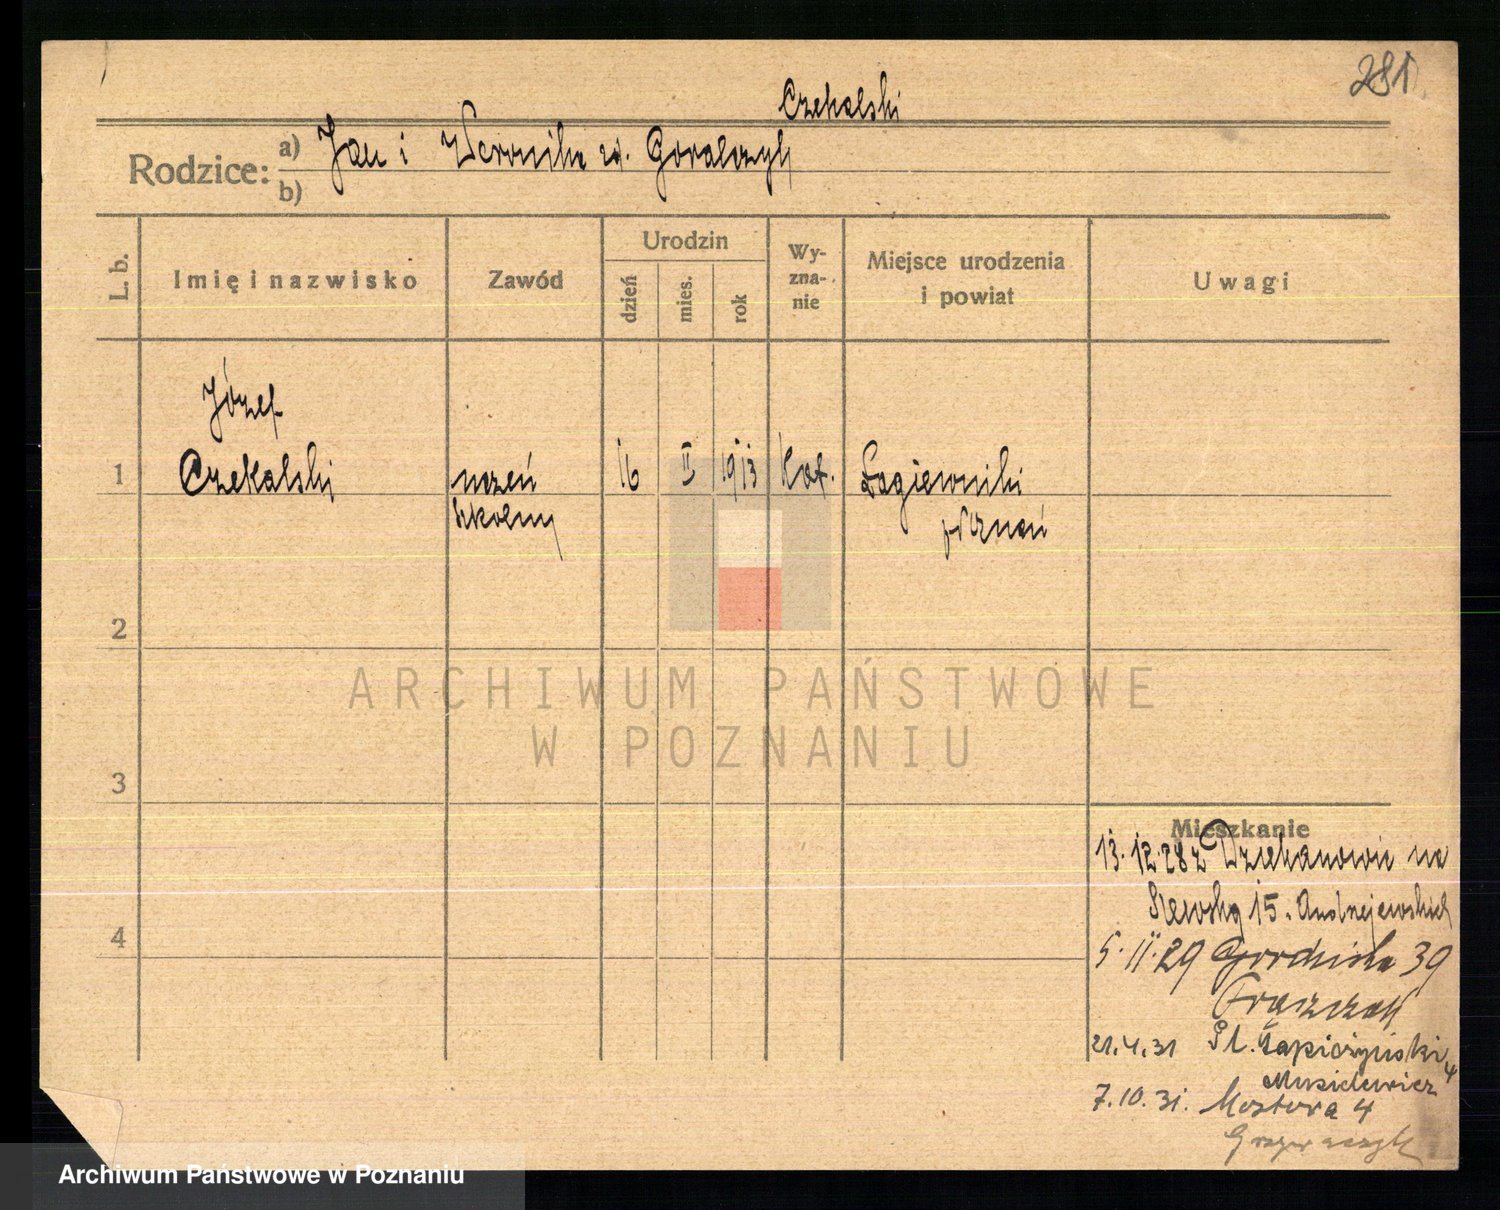 281
Czekalski
Rodzice: a) Jan i Weronika zd. Goralczyk
b)
L. b.
Imię i nazwisko
Zawód
Urodzin
dzień
mies.
rok
Wy-
zna-
nie
Miejsce urodzenia
i powiat
Uwagi
Józef
1 Czekalski uczeń 16 II 1913 Kat. Łagiewniki
szkolny Poznań
2
3
4
ARCHIWUM PAŃSTWOWE
W POZNANIU
Mieszkanie
13.12.28 z Dziekanowic na
Szewską 15. Andrzejewskich
5.II.29 39
Frąszczak
21.4.31 Pl. Sapieżyński 4
Musielewicz
7.10.31. Mostowa 4
Archiwum Państwowe w Poznaniu